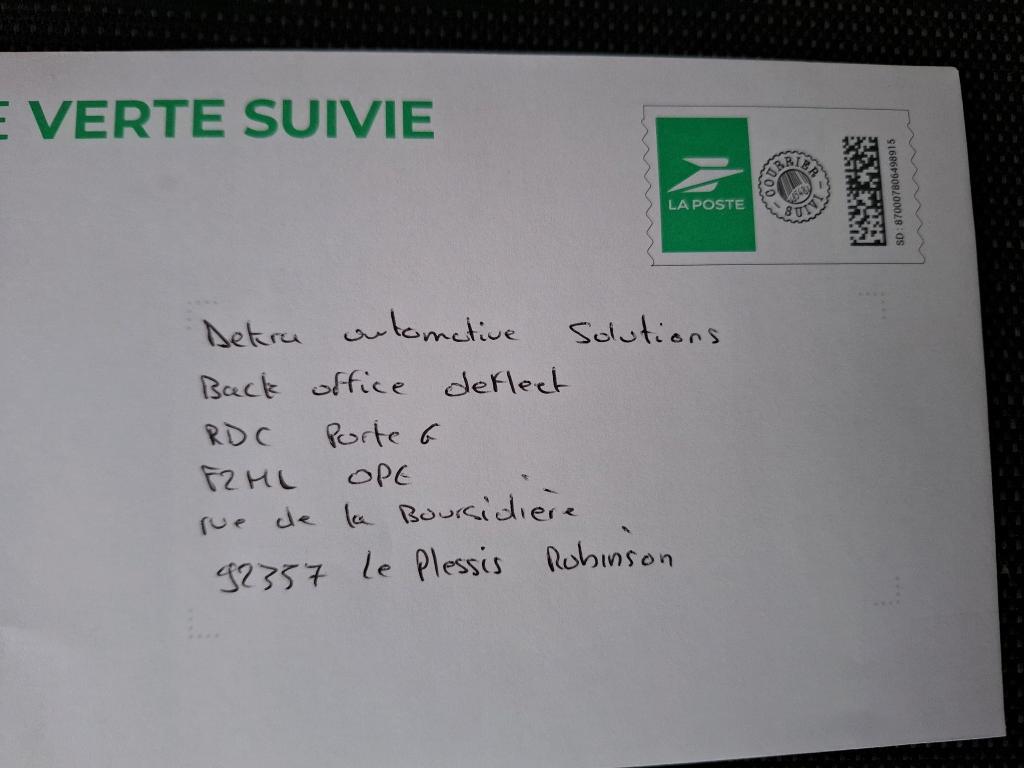 E VERTE SUIVIE
LA POSTE
COURRIER SUIVI
SD : 870007806498915
Dekra automotive Solutions
Back office deflect
RDC Porte G
F2ML OPE
rue de la Boursidière
92357 le Plessis Robinson